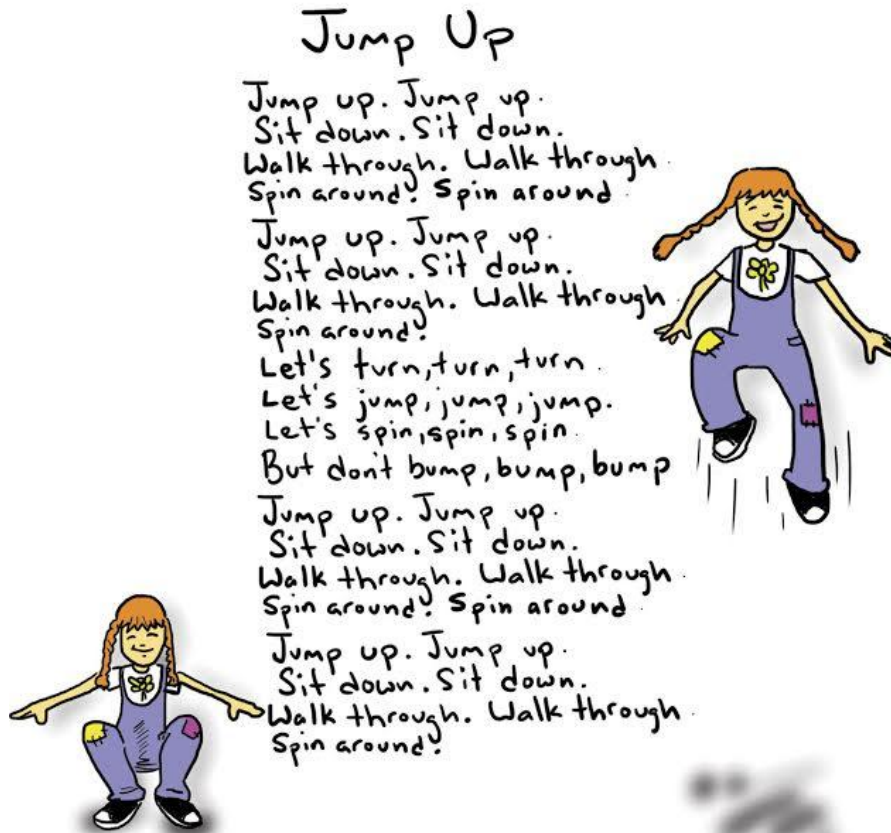 Jump Up
Jump up. Jump up.
Sit down. Sit down.
Walk through. Walk through.
Spin around! Spin around.
Jump up. Jump up.
Sit down. Sit down.
Walk through. Walk through.
Spin around!
Let's turn, turn, turn.
Let's jump, jump, jump.
Let's spin, spin, spin.
But don't bump, bump, bump
Jump up. Jump up.
Sit down. Sit down.
Walk through. Walk through.
Spin around! Spin around.
Jump up. Jump up.
Sit down. Sit down.
Walk through. Walk through.
Spin around!